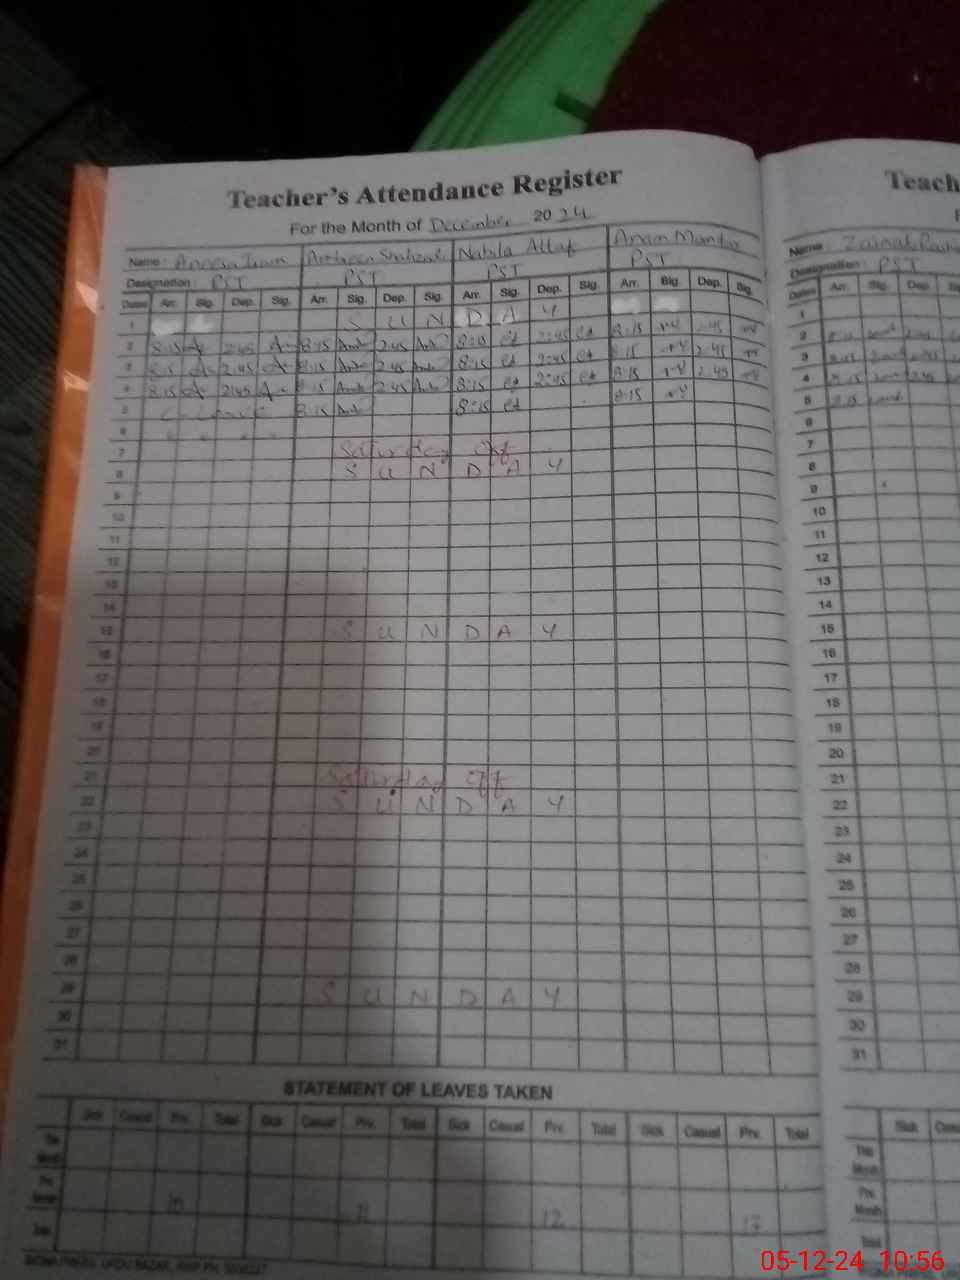 Teacher's Attendance Register
Teach
For the Month of December 2024
Name: Aneesa Shahzadi Nabila Altaf Anam Mumtaz Name: Zainab
Designation: PST PST PST PST Designation: PST
Dates Arr. Sig. Dep. Sig. Arr. Sig. Dep. Sig. Arr. Sig. Dep. Sig. Arr. Sig. Dep. Sig. Dates Arr. Sig. Dep.
1 S U N D A Y 1
2 8:15 2:45 8:15 2:45 8:15 2:45 8:15 2:45 2
3 8:15 2:45 8:15 2:45 8:15 2:45 8:15 2:45 3
4 8:15 2:45 8:15 2:45 8:15 2:45 8:15 2:45 4
5 C-Leave 8:15 8:15 8:15 5
6 6
7 Saturday Off 7
8 S U N D A Y 8
9 9
10 10
11 11
12 12
13 13
14 14
15 S U N D A Y 15
16 16
17 17
18 18
19 19
20 20
21 Saturday Off 21
22 S U N D A Y 22
23 23
24 24
25 25
26 26
27 27
28 28
29 S U N D A Y 29
30 30
31 31
STATEMENT OF LEAVES TAKEN
Sick Casual Prv. Total Sick Casual Prv. Total Sick Casual Prv. Total Sick Casual Prv. Total Sick
This Month This Month
Prv. Month 10 11 12 17 Prv. Month
Total Total
URDU BAZAR,
05-12-24 10:56